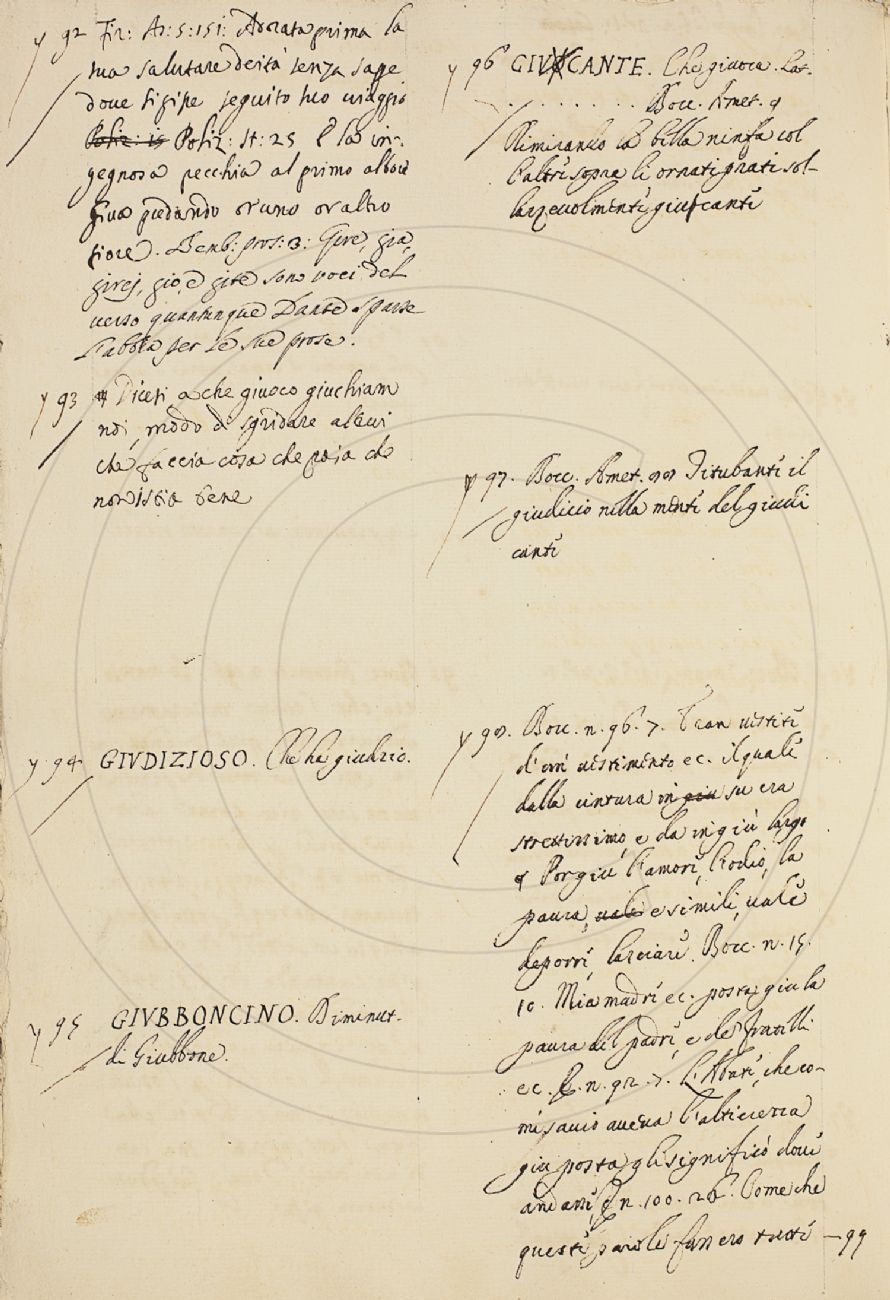 92 Fir: As: 5: 151: Adorata prima la
tua salutare deità senza sape
doue si gisse seguitò suo uiaggio
Poliz: 15 Poliz: st: 25 E la in-
gegnosa pecchia al primo albore
giua predando or uno or altro
fiore. Bemb: pros: 3: Gire, gia,
girej, gio, e gite sono uoci del
uerso quantunque Dante sparse
l'abbia per le sue prose.
93 Dicesi a che giuoco giuchiam
noi, modo di sgridare altrui
che faccia cosa che paia che
non istia bene
94 GIVDIZIOSO. Che ha giudizio.
95 GIVBBONCINO. Diminut.
di Giubbone.
96 GIVCANTE. Che giuoca. Lat.
. . . . . . . . Bocc. Amet. 9
Rimirando la bella ninfa col
l'altri sopra li ornati prati sol-
lazzeuolmenti giucanti
97. Bocc. Amet. Titubanti il
giudicio nella menti del giudi
canti
98. Bocc. n. 96. 7. Eran uestiti
d'un uestimento ec. il quali
dalla cintura in giu su era
strettissimo, e da in giù largo
Por giu l'amori, l'odio, la
paura, uali e simili, uali
deporri, lasciari. Bocc. n. 15.
10. Mia madri ec. posta giu la
paura del padri, e de' fratelli
ec. E n. 92. 7. L'Abati, che co-
mi sauio aueua l'alterezza
giu posta gli significò doui
andassi, E n. 100. 26. Come che
questi paroli fussero tutti — 99